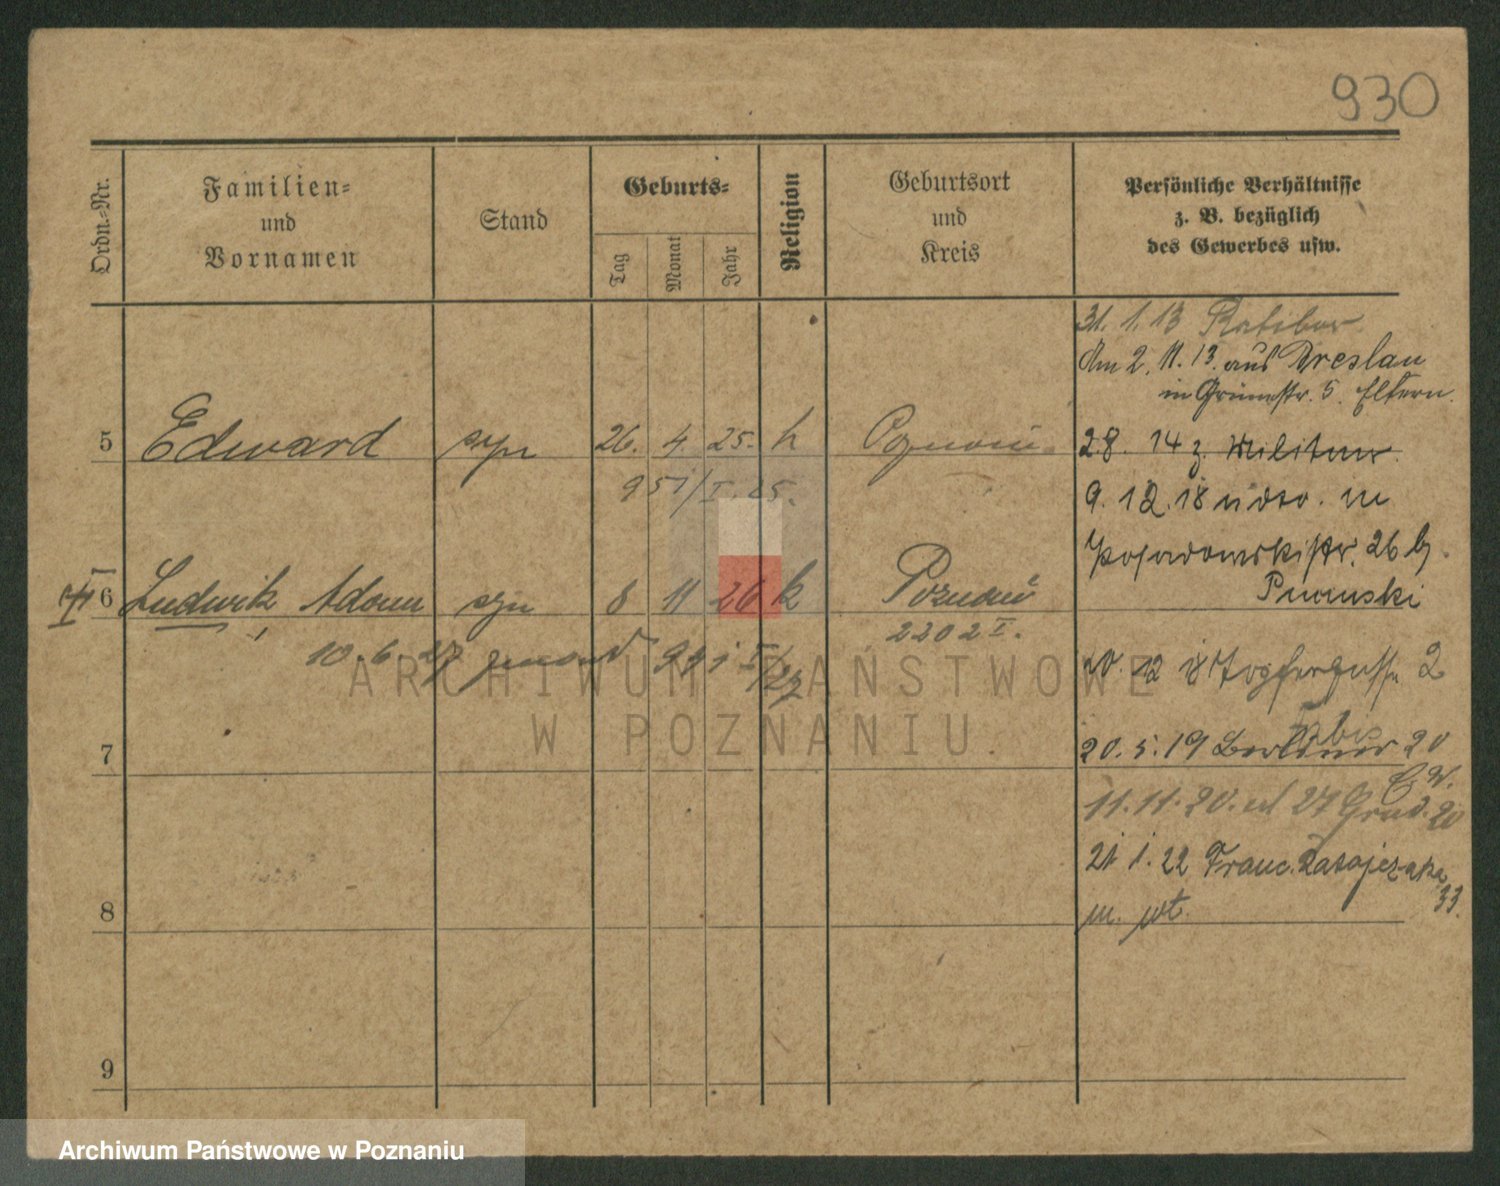 930
Ordn.=Nr.
Familien=
und
Vornamen
Stand
Geburts=
Tag
Monat
Jahr
Religion
Geburtsort
und
Kreis
Persönliche Verhältnisse
z. B. bezüglich
des Gewerbes usw.
31. 1. 13 Ratibor
Am 2. 11. 13. aus Breslau
in Grünestr. 5. Eltern.
5 Edward syn 26. 4. 25. k Poznań
28. 14 z. Militär
951/I. 25.
9. 12. 18
Posadowskistr. 26
6 Ludwik, Adam syn 8 11 26 k Poznań
2202 I.
10. 6. 27
20. 12 18 Töpfergasse 2
7
20. 5. 19 Berliner 20
11. 11. 20. 27 Grud. 20
21 1. 22 Franc. Ratajczaka
33.
8
m. pt.
9
ARCHIWUM PAŃSTWOWE
W POZNANIU.
Archiwum Państwowe w Poznaniu